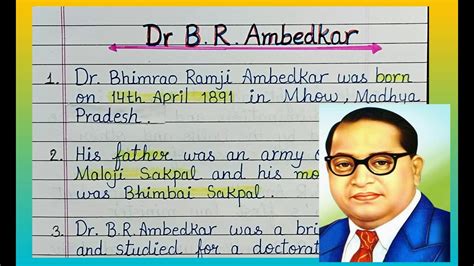 Dr B.R. Ambedkar
1. Dr. Bhimrao Ramji Ambedkar was born
on 14th April 1891 in Mhow, Madhya
Pradesh.
2. His father was an army
Maloji Sakpal and his
was Bhimbai Sakpal.
3. Dr. B.R Ambedkar was a
and studied for a